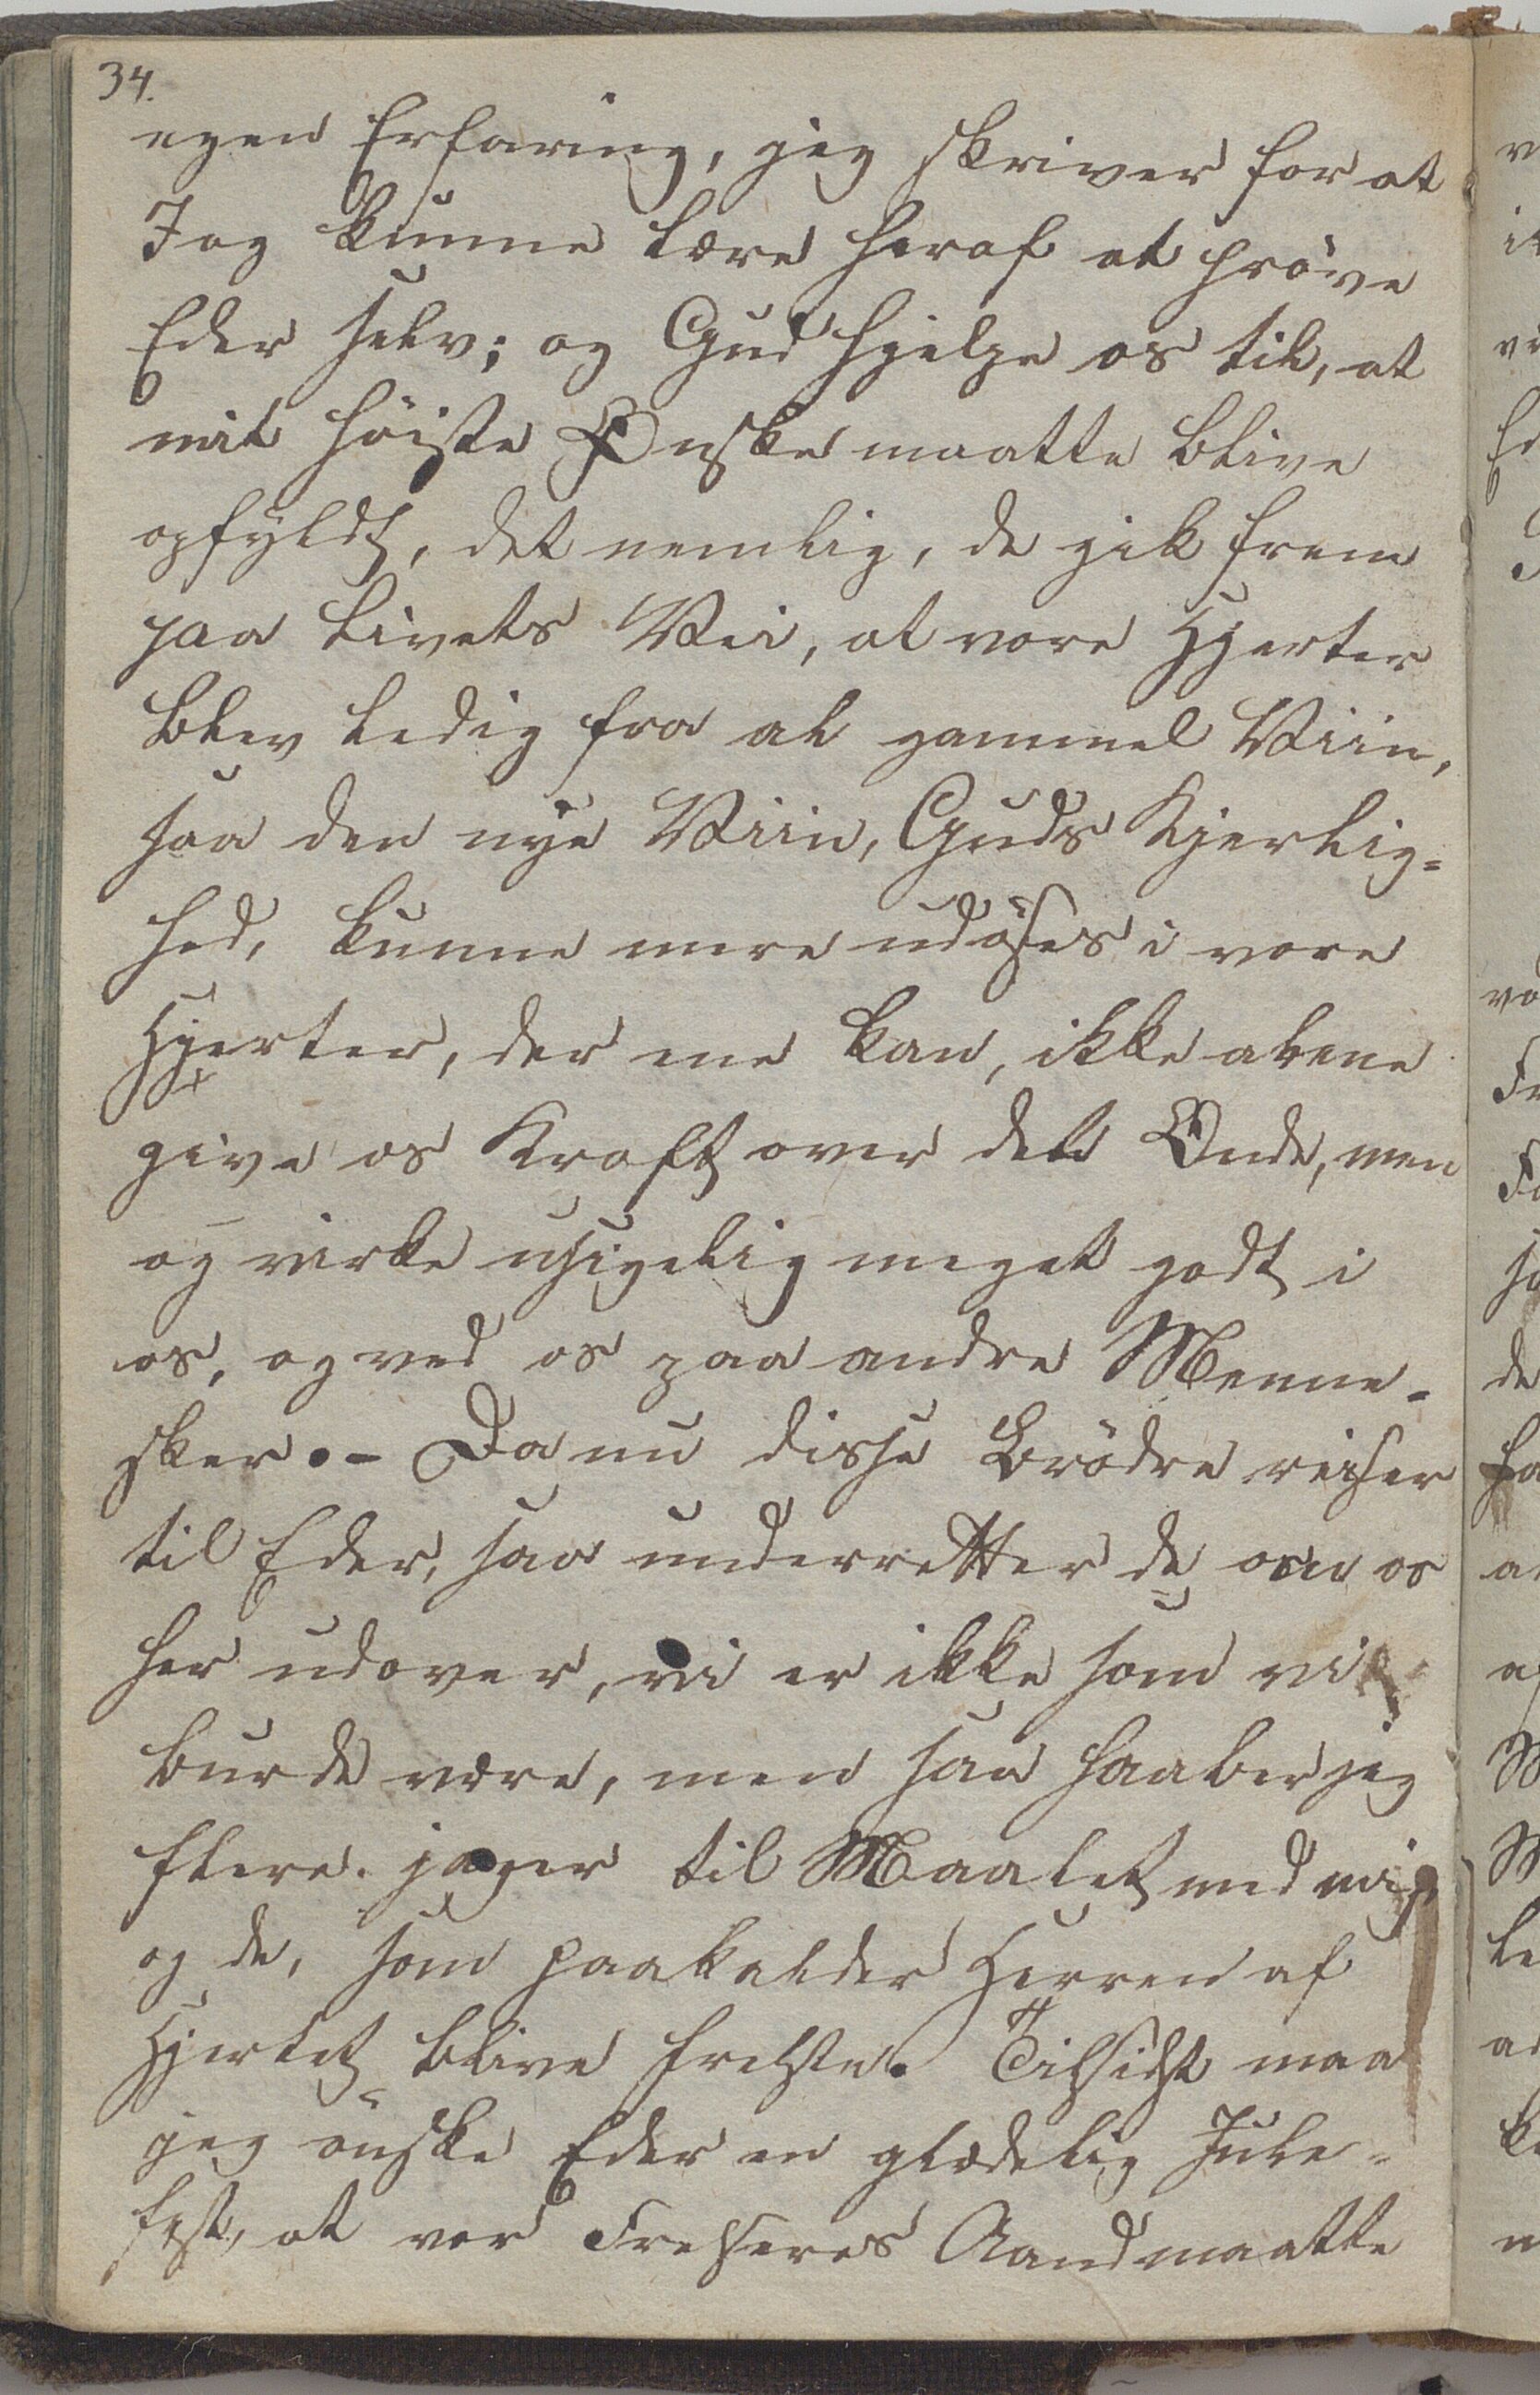 34.
egen Erfaring, jeg skriver for at
I og kunne lære heraf at pröve
Eder selv; og Gud hjelpe os til, at
mit höiste Ønske maatte blive
opfyldt, det nemlig, de gik frem
paa Livets Vei, at vore Hjerter
blev ledig fra al gammel Viin,
saa den nye Viin, Guds Kjerlig=
hed, kunne mere udöses i vore
Hjerter, der ene kan, ikke alene
give os Kraft over det Onde, men
og virke usigelig meget godt i
os, og ved os paa andre Menne-
sker. - Da nu disse Brödre reiser
til Eder, saa underretter de om os
her udover, vi er ikke som vi
burde være, men saa haaber jeg
flere jager til Maalet med mig,
og de, som paakalder Herren af
Hjertet blive frelste. Tilsidst maa
jeg önske Eder en glædelig Jule-
fest, at vor Frelseres Aand maatte